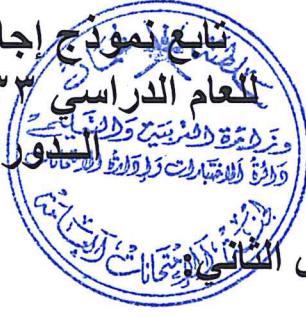 تابع نموذج إجا
للعام الدراسي ٣٣
وزارة التربية والتعليم
الدور
دائرة الاختبارات وإدارة الامتحانات
الثاني: